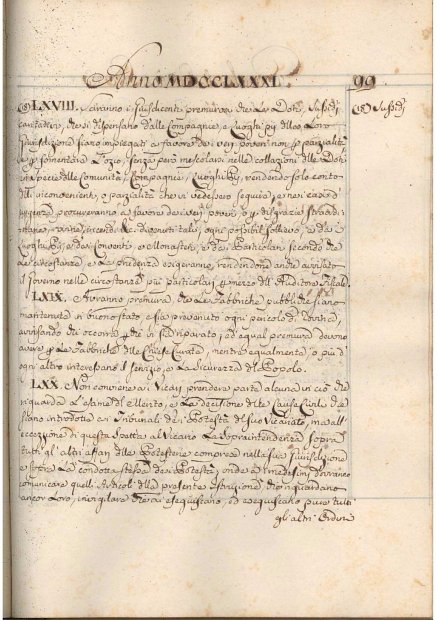 Anno MDCCLXXXI. 99
(18) LXVIII. Avranno i Giusdicenti premura, che le Doti, Sussidj (18) Sussidj
caritativi, che si dispensano dalle Compagnie, e Luoghi pij della loro
Giurisdizione siano impiegati a favore dei veri poveri non p parzialità
o p fomentare l'ozio, senza però mescolarsi nelle collazioni delle Doti
in specie delle Comunità, Compagnie, Luoghi Pij, rendendo solo conto
dell' inconvenienti, o parzialità che vi vedessero seguire, e nei casi d'
urgenza procureranno a favore dei veri poveri, o p disgrazie straordi
narie, rovine, incendi &c. divenuti tali, ogni possibil sollievo, e dai
Luoghi Pij, e dai Conventi, e Monasteri, e dai Particolari secondo che
le circostanze, e la prudenza esigeranno, rendendone anche avvisato
il Governo nelle circostanze più particolari p mezzo dell' Auditore Fiscale.
LXIX. Avranno premura, che le Fabbriche pubbliche siano
mantenute in buono stato, e sia prevenuto ogni pericolo di rovina,
avvisando chi occorre p che vi sia riparato; ed egual premura devono
avere p le Fabbriche delle Chiese Curate, mentre egualmente, o più d'
ogni altro interessano il servizio, e la sicurezza del Popolo.
LXX. Non conviene ai Vicarj prendere parte alcuna in ciò che
riguarda l'esame del merito, e la decisione delle Cause Civili che
siano introdotte ai Tribunali dei Potestà del suo Vicariato, ma all'
eccezione di questa spetta al Vicario la Soprintendenza sopra
tutti gl' altri affari delle Potesterie comprese nella sua Giurisdizione
e sopra la condotta stessa dei Potestà, onde ai medesimi dovranno
comunicare quelli Articoli della presente Istruzione che riguardano
ancor loro, invigilare che ai eseguiscano, ed eseguiscano pure tutti
gli altri Ordini